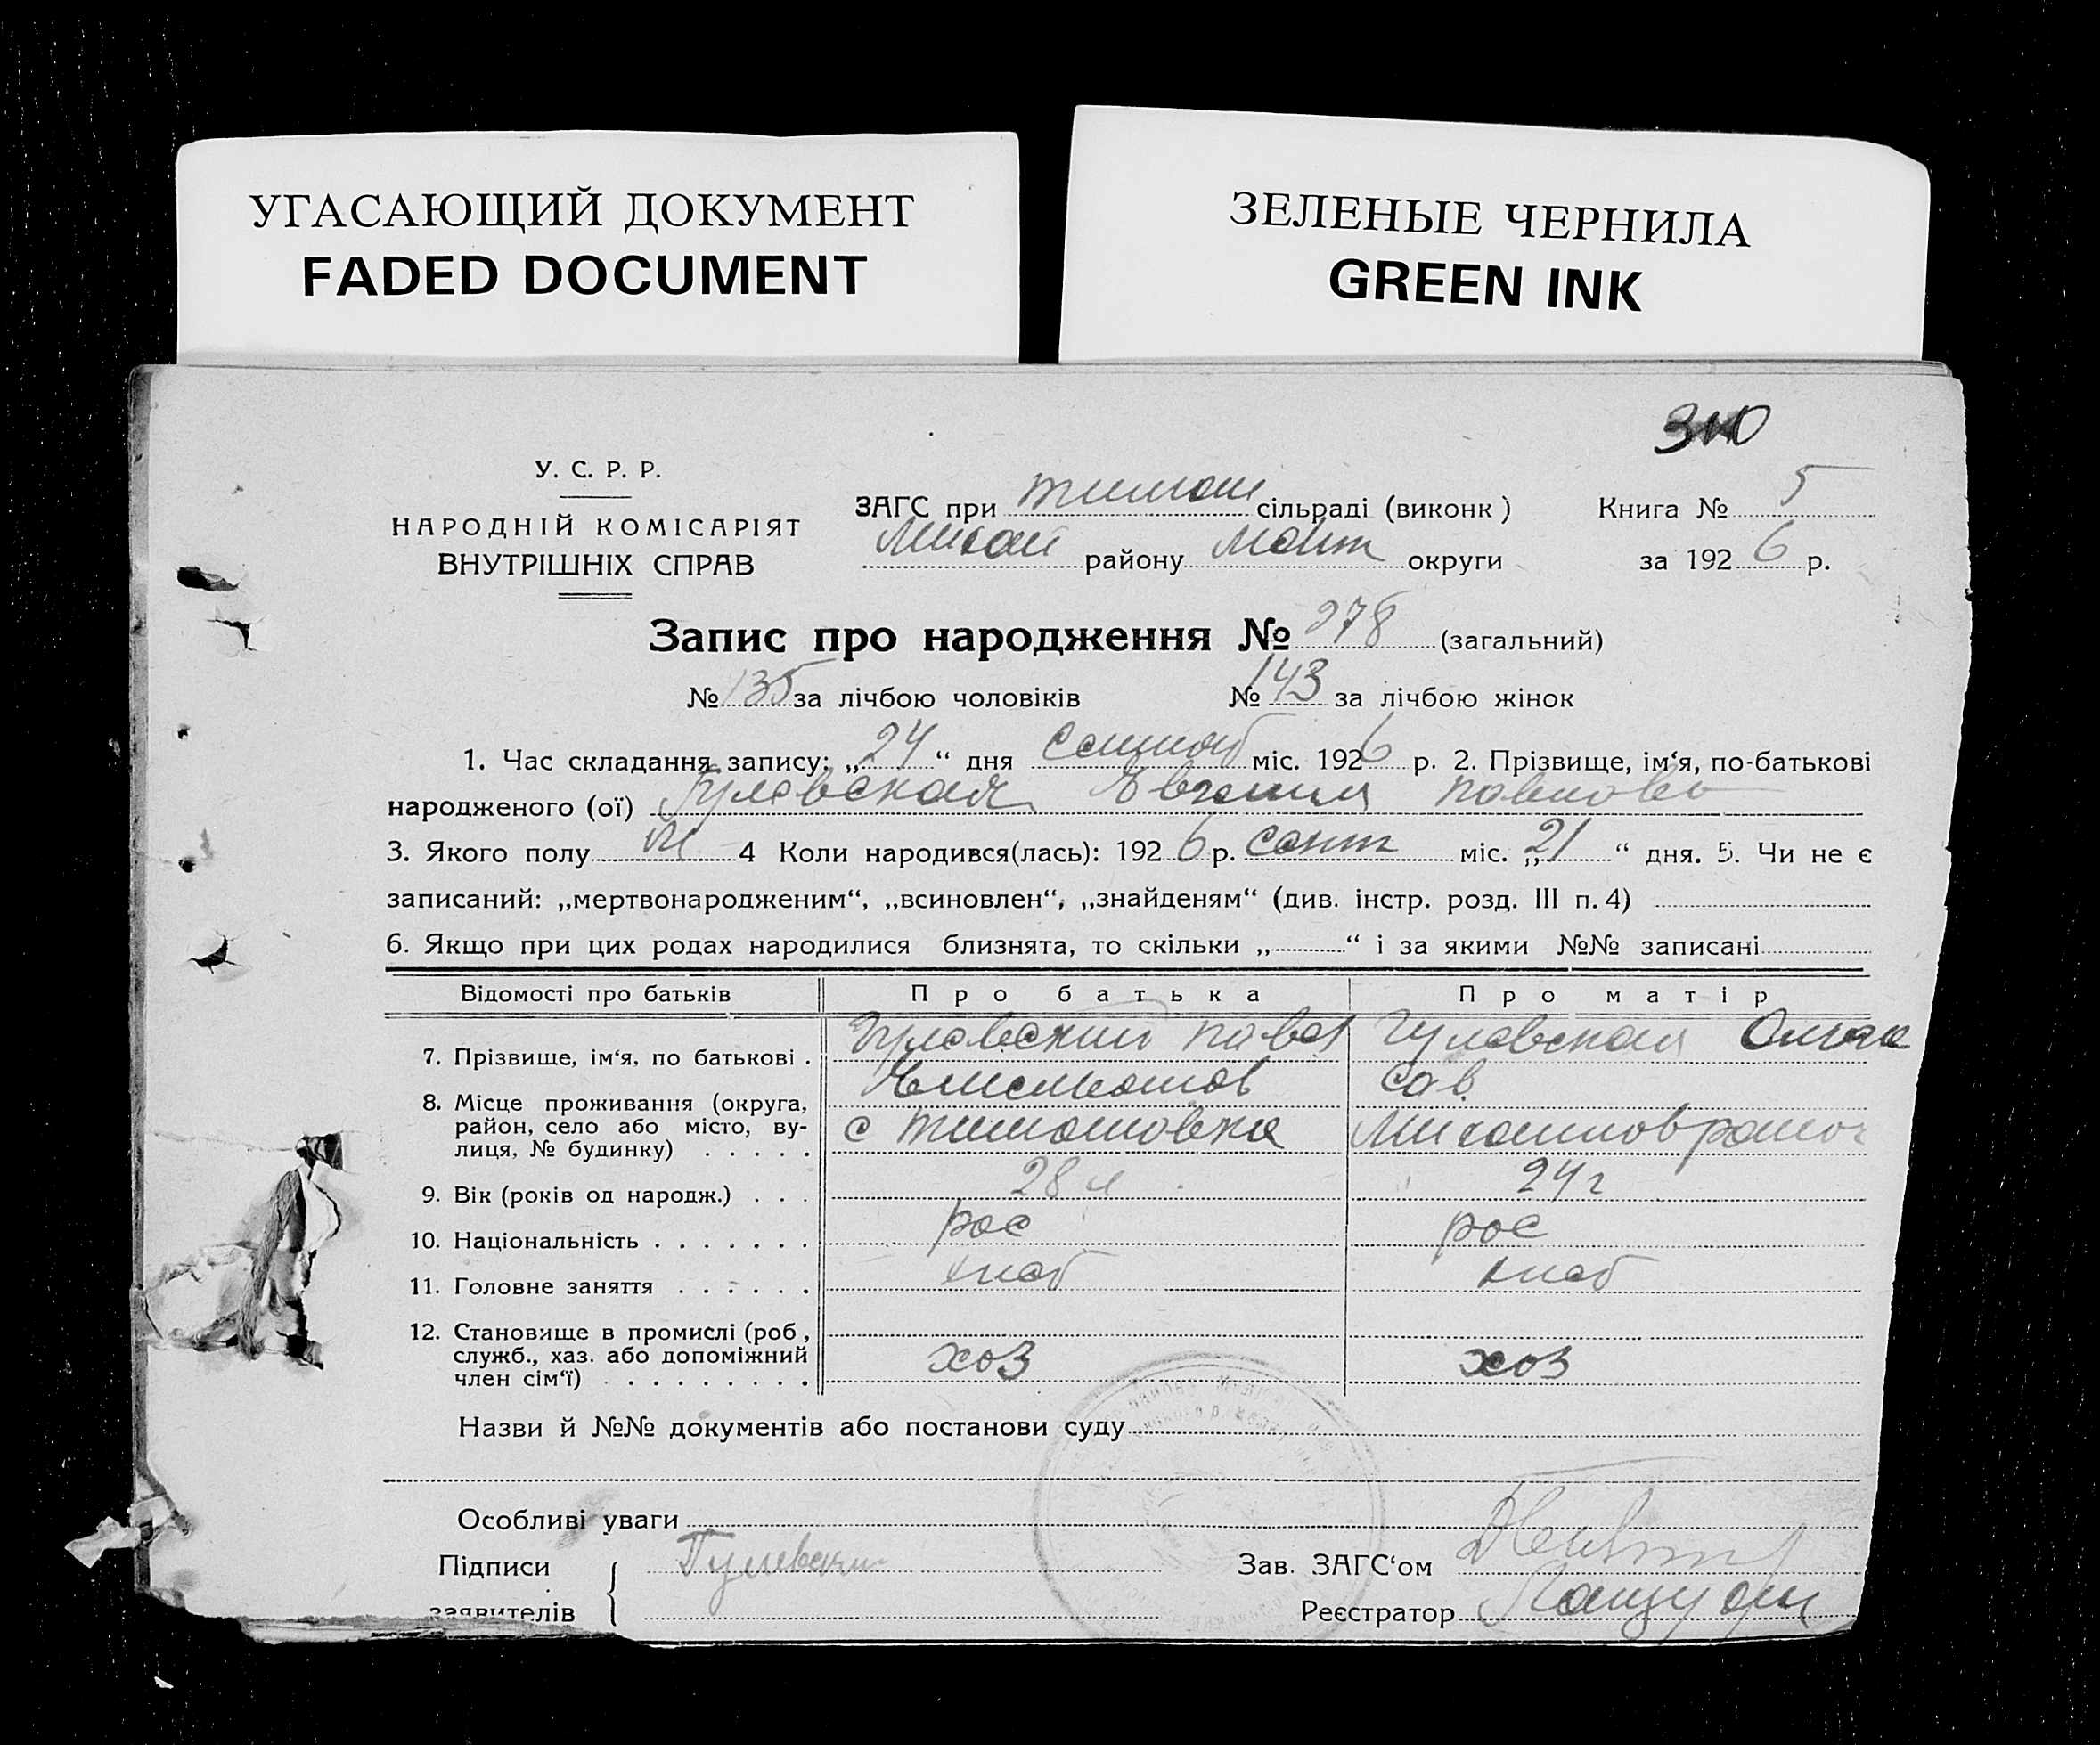 УГАСАЮЩИЙ ДОКУМЕНТ
FADED DOCUMENT
ЗЕЛЕНЫЕ ЧЕРНИЛА
GREEN INK
310
У. С. Р. Р.
НАРОДНІЙ КОМІСАРІЯТ
ВНУТРІШНІХ СПРАВ
ЗАГС при тимош сільраді (виконк) Книга № 5
Михай району Меліт округи за 1926 р.
Запис про народження № 278 (загальний)
№ 135 за лічбою чоловіків № 143 за лічбою жінок
1. Час складання запису: „24“ дня міс. 1926 р. 2. Прізвище, ім‘я, по-батькові
народженого (ої) Гулевская Евгения Павлов
3. Якого полу 4 Коли народився(лась): 1926 р. сент міс. „21“ дня. 5. Чи не є
записаний: „мертвонародженим“, „всиновлен“, „знайденям“ (див. інстр. розд. III п. 4)
6. Якщо при цих родах народилися близнята, то скільки „ “ і за якими №№ записані
Відомості про батьків Про батька Про матір
7. Прізвище, ім‘я, по батькові . Гулевский Павел Гулевская Ольга
сав.
8. Місце проживання (округа,
район, село або місто, ву-
лиця, № будинку) . . . . . с Тимошовка
9. Вік (років од народж.) . . . 28 л 24 г
10. Національність . . . . . . . рос рос
11. Головне заняття . . . . . . хлеб хлеб
12. Становище в промислі (роб,
служб., хаз. або допоміжний
член сім‘ї) . . . . . . . . . хоз хоз
Назви й №№ документів або постанови суду
Особливі уваги
Підписи Гулевски Зав. ЗАГС‘ом
заявителів Реєстратор